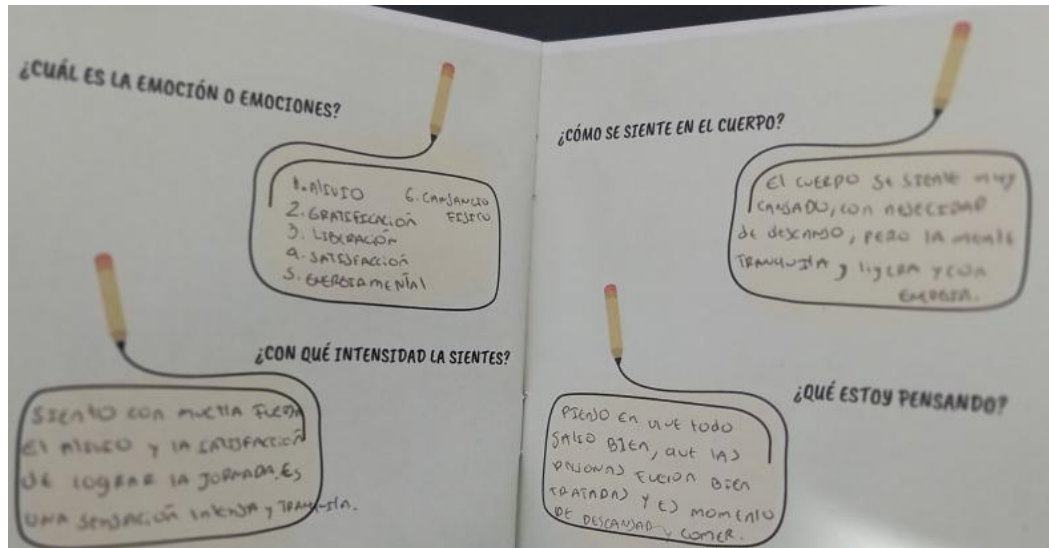 ¿CUÁL ES LA EMOCIÓN O EMOCIONES?
1. ALIVIO
2. GRATIFICACIÓN
3. LIBERACIÓN
4. SATISFACCIÓN
5. ENERGIA MENTAL
6. CANSANCIO
FISICO
¿CON QUÉ INTENSIDAD LA SIENTES?
SIENTO CON MUCHA FUERZA
El Alivio y lA SATISFACCIÓN
DE LOGRAR LA JORNADA. ES
UNA SENSACIÓN INTENSA y TRANQUILA.
¿CÓMO SE SIENTE EN EL CUERPO?
El CUERPO SE SIENTE MUY
CANSADO, CON NECESIDAD
de descanso, PERO lA MENTE
TRANQUILA y ligera Y CON
ENERGIA.
¿QUÉ ESTOY PENSANDO?
PIENSO EN QUE todo
SALIO BIEN, QUE lAS
PERSONAS FUERON BIEN
TRATADAS Y ES MOMENTO
DE DESCANSAR y COMER.